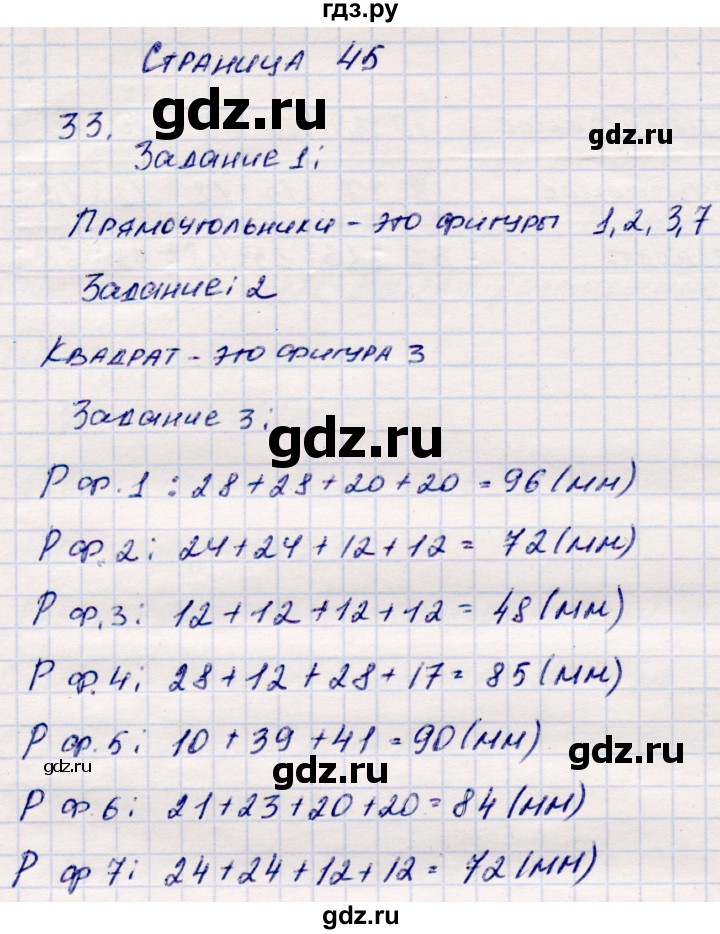 гдз.ру
Страница 45
gdz.ru
gdz.ru
33.
Задание 1:
Прямоугольники - это фигуры 1, 2, 3, 7
Задание: 2
Квадрат - это фигура 3
Задание 3:
gdz.ru
P ф. 1 : 28 + 28 + 20 + 20 = 96 (мм)
P ф. 2: 24 + 24 + 12 + 12 = 72 (мм)
P ф. 3: 12 + 12 + 12 + 12 = 48 (мм)
P ф. 4: 28 + 12 + 28 + 17 = 85 (мм)
P ф. 5: 10 + 39 + 41 = 90 (мм)
gdz.ru
gdz.ru
gdz.ru
P ф. 6: 21 + 23 + 20 + 20 = 84 (мм)
P ф 7: 24 + 24 + 12 + 12 = 72 (мм)
gdz.ru